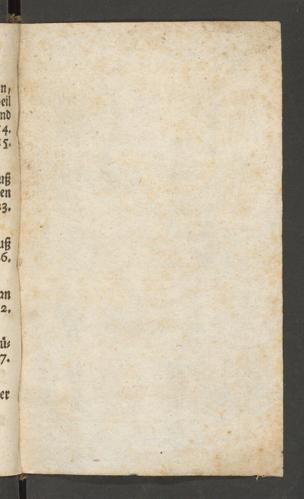 n,
eil
nd
4.
5.
uß
en
3.
uß
6.
an
2.
ü⸗
7.
er